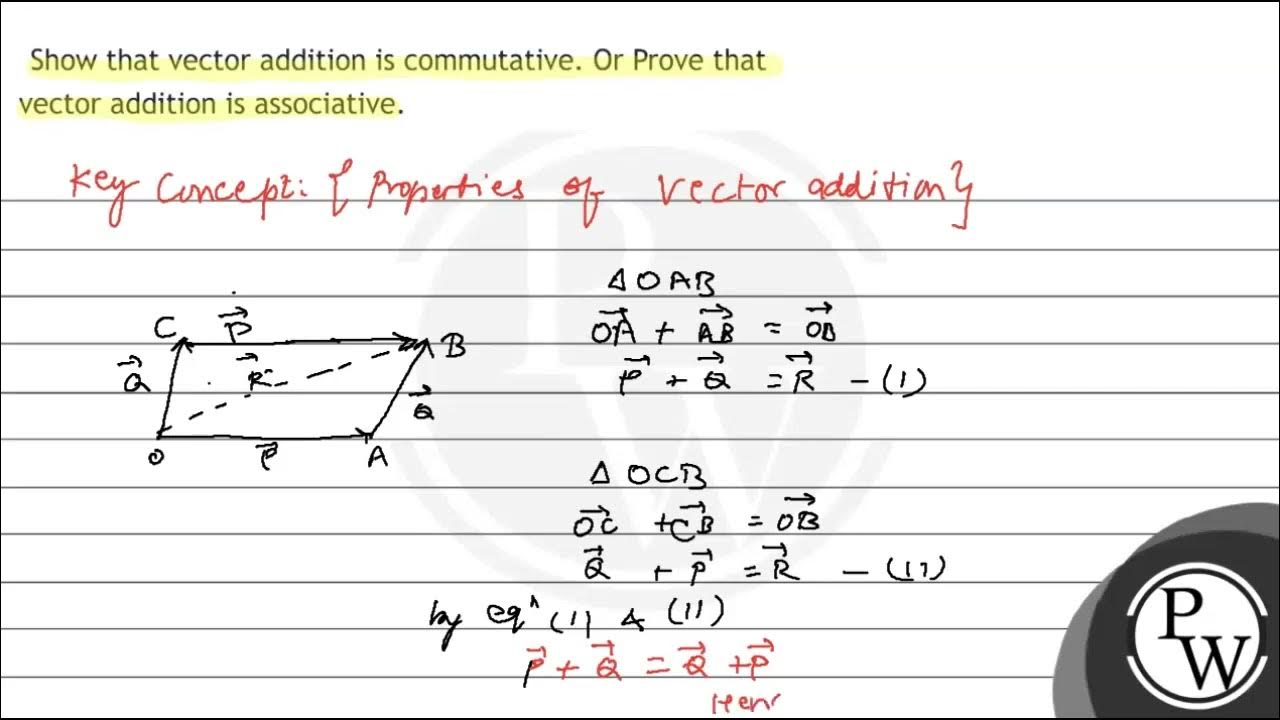 Show that vector addition is commutative. Or Prove that
vector addition is associative.
Key Concept: { Properties of vector addition}
C P⃗ B
Q⃗ R⃗ Q⃗
O P⃗ A
Δ OAB
O⃗A + A⃗B = O⃗B
P⃗ + Q⃗ = R⃗ – (I)
Δ OCB
O⃗C + C⃗B = O⃗B
Q⃗ + P⃗ = R⃗ – (II)
by eqⁿ (I) & (II)
P⃗ + Q⃗ = Q⃗ + P⃗
Henc
PW